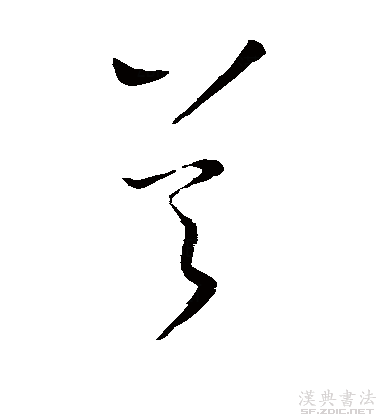 兮
漢典書法
SF.ZDIC.NET